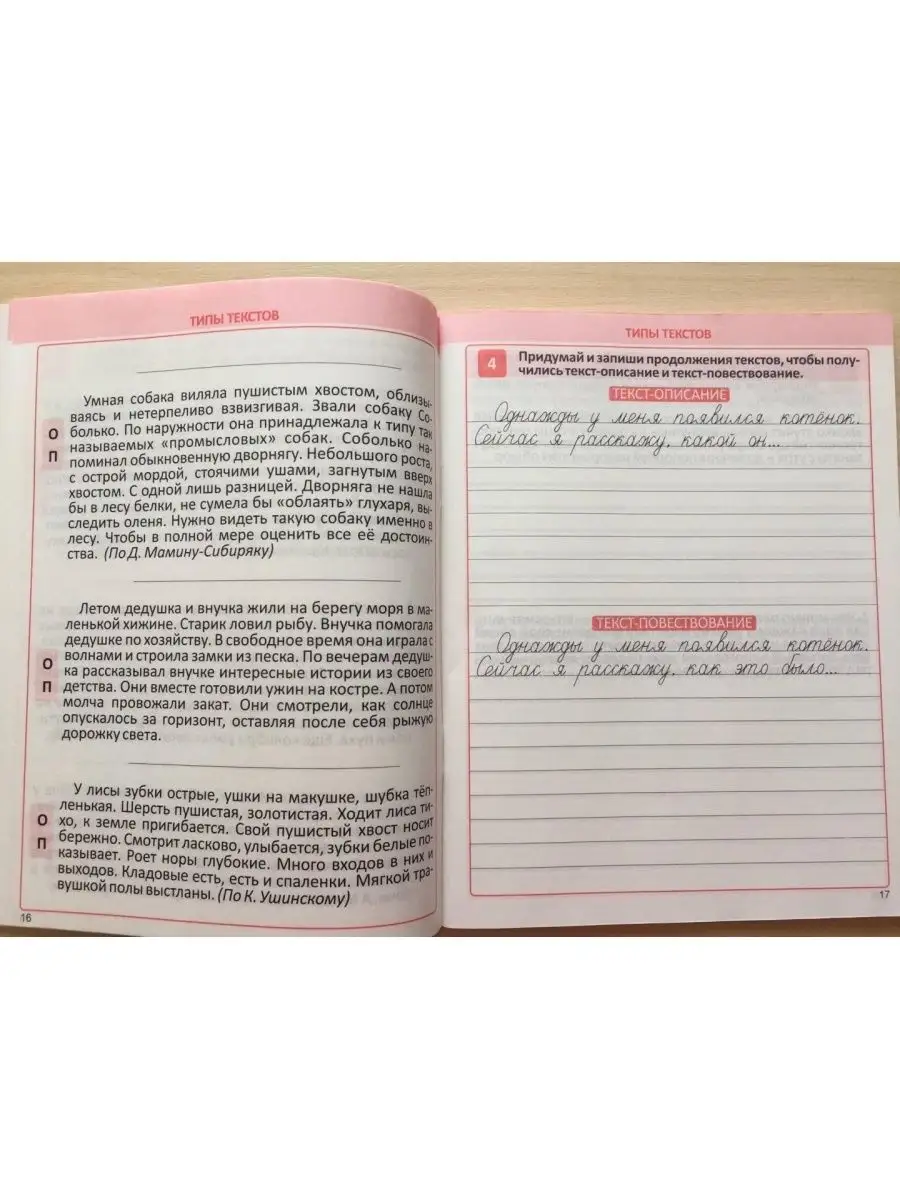 ТИПЫ ТЕКСТОВ
Умная собака виляла пушистым хвостом, облизы-
ваясь и нетерпеливо взвизгивая. Звали собаку Со-
болько. По наружности она принадлежала к типу так
называемых «промысловых» собак. Соболько на-
поминал обыкновенную дворнягу. Небольшого роста,
с острой мордой, стоячими ушами, загнутым вверх
хвостом. С одной лишь разницей. Дворняга не нашла
бы в лесу белки, не сумела бы «облаять» глухаря, вы-
следить оленя. Нужно видеть такую собаку именно в
лесу. Чтобы в полной мере оценить все её достоин-
ства. (По Д. Мамину-Сибиряку)
О
П
Летом дедушка и внучка жили на берегу моря в ма-
ленькой хижине. Старик ловил рыбу. Внучка помогала
дедушке по хозяйству. В свободное время она играла с
волнами и строила замки из песка. По вечерам дедуш-
ка рассказывал внучке интересные истории из своего
детства. Они вместе готовили ужин на костре. А потом
молча провожали закат. Они смотрели, как солнце
опускалось за горизонт, оставляя после себя рыжую
дорожку света.
О
П
У лисы зубки острые, ушки на макушке, шубка тёп-
ленькая. Шерсть пушистая, золотистая. Ходит лиса ти-
хо, к земле пригибается. Свой пушистый хвост носит
бережно. Смотрит ласково, улыбается, зубки белые по-
казывает. Роет норы глубокие. Много входов в них и
выходов. Кладовые есть, есть и спаленки. Мягкой тра-
вушкой полы высланы. (По К. Ушинскому)
О
П
16
ТИПЫ ТЕКСТОВ
4
Придумай и запиши продолжения текстов, чтобы полу-
чились текст-описание и текст-повествование.
ТЕКСТ-ОПИСАНИЕ
Однажды у меня появился котёнок.
Сейчас я расскажу, какой он...
ТЕКСТ-ПОВЕСТВОВАНИЕ
Однажды у меня появился котёнок.
Сейчас я расскажу, как это было...
17